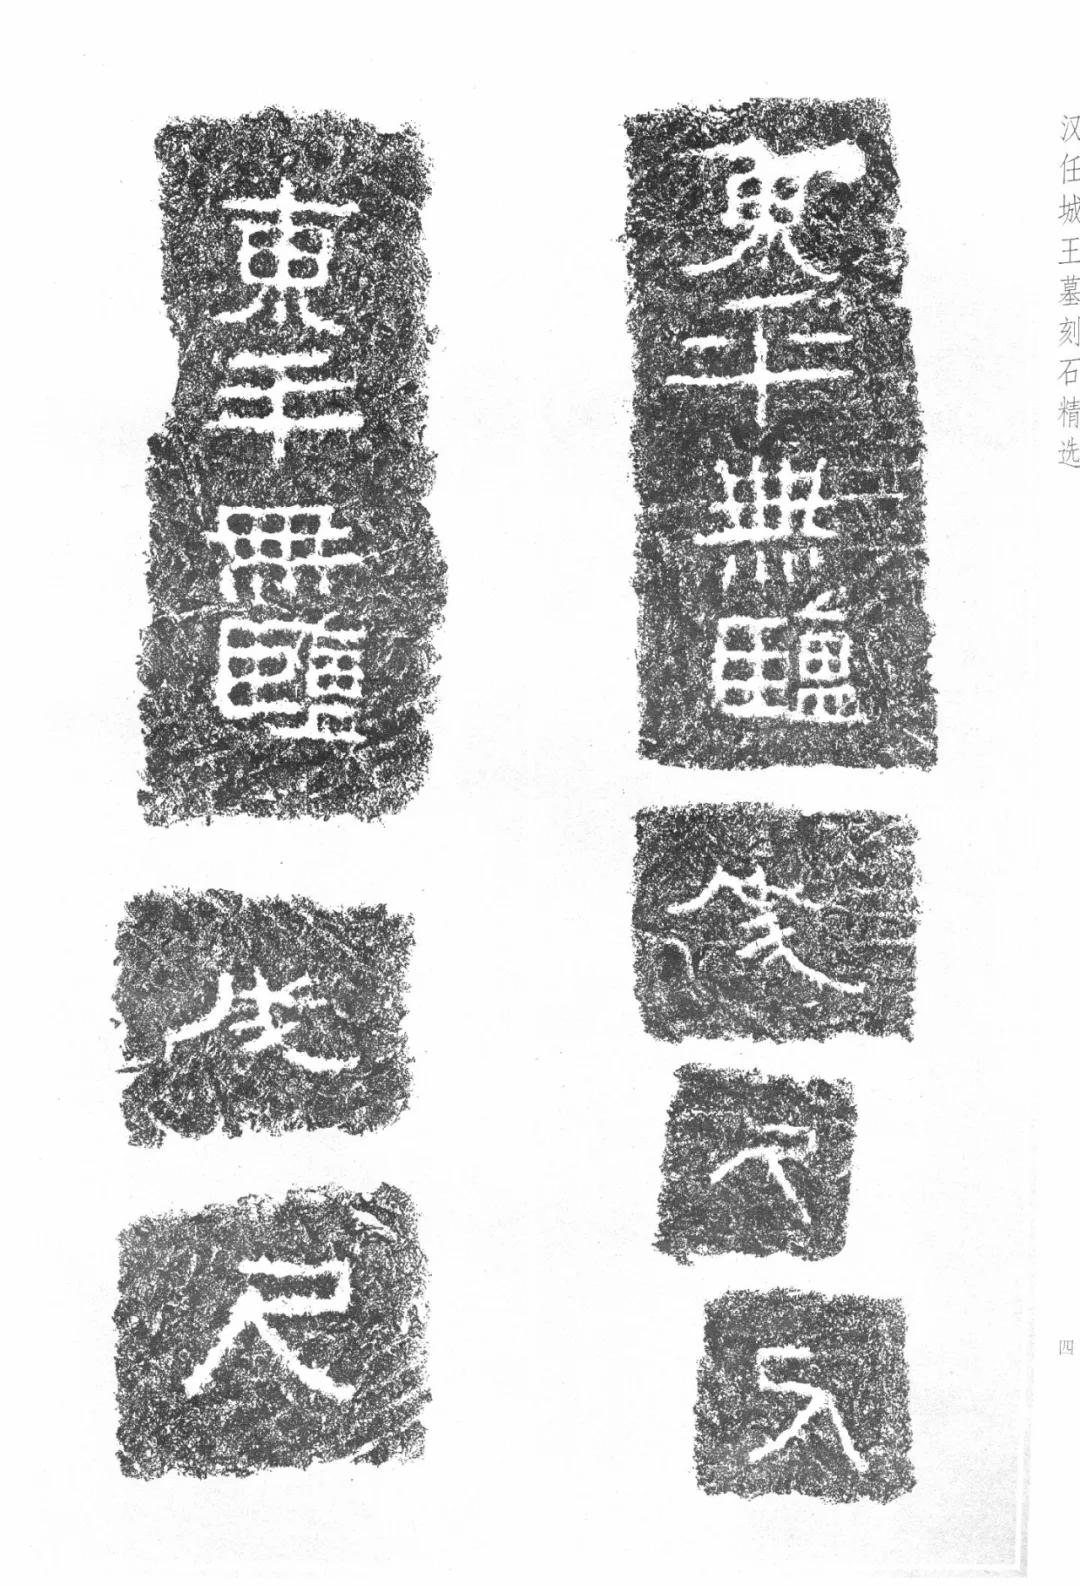 汉任城王墓刻石精选
四
東平無鹽
尺
尺
東平無鹽
尺